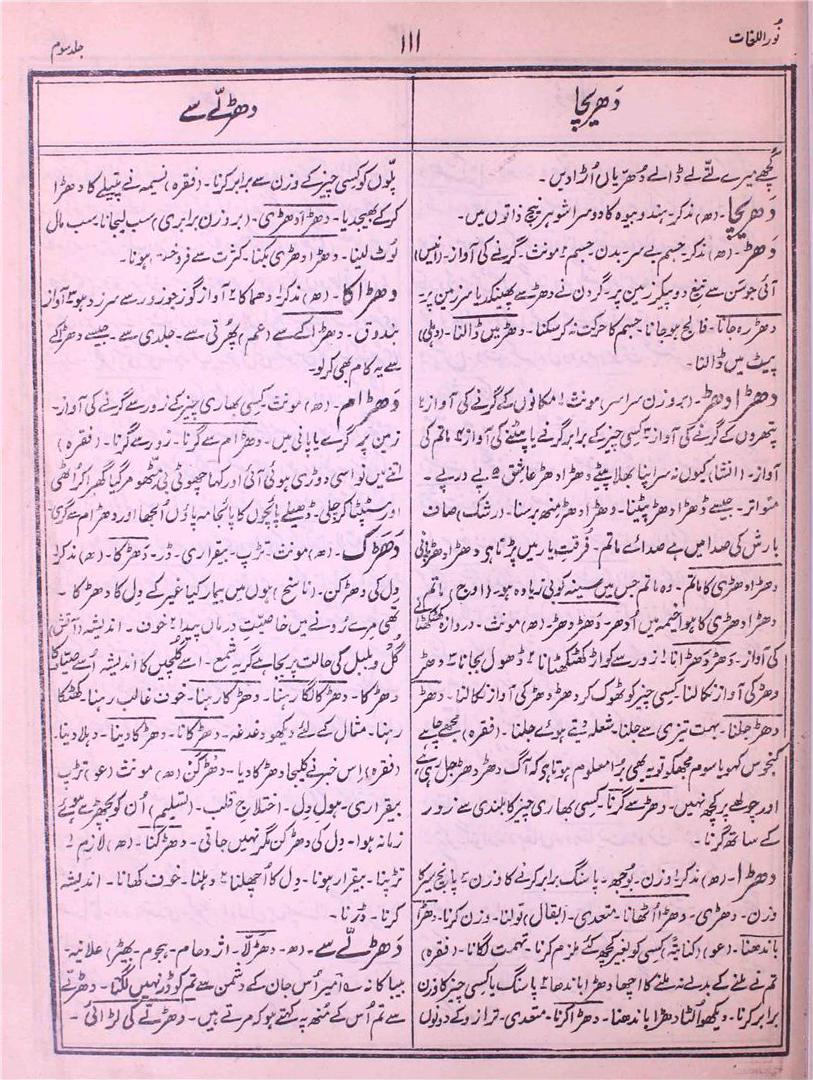 نُور اللغات
۱۱۱
جلد سوم
دَھریچا
دھڑلّے سے
گُچھے میرے لتّے لے ڈالے دُھریاں اُڑا دیں۔
دَھریچا۔ (ھ) مذکر۔ ہندو بیوہ کا دوسرا شوہر نیچ ذاتوں میں۔
دَھڑ۔ (ھ) مذکر۔ جسم بے سر۔ بدن۔ جسم ۲ مونث۔ گرنے کی آواز۔ (انیس)
آئی جو سَن سے تیغ دو پیکر زمین پر۔ گردن نے دھڑ سے پھینکدیا سر زمین پر۔
دھڑ رہ جانا۔ فالج ہو جانا جسم کا حرکت نہ کر سکنا۔ دھڑ میں ڈالنا۔ (دہلی)
پیٹ میں ڈالنا۔
دھڑا دھڑ۔ (بر وزن سراسر) مونث ۱ مکانوں کے گرنے کی آواز ۲
پتھروں کے گرنے کی آواز ۳ کسی چیز کے برابر گرنے یا پٹنے کی آواز ۴ ماتم کی
آواز۔ (انشا) کیوں نہ سر اپنا بھلا پیٹے دھڑا دھڑ عاشق ۵ پے در پے۔
متواتر۔ جیسے دھڑا دھڑ پیٹنا۔ دھڑا دھڑ منھ برسنا۔ (رشک) صاف
بارش کی صدا میں ہے صدائے ماتم۔ فُرقتِ یار میں پڑتا ہو دھڑا دھڑ پانی
دھڑا دھڑی کا ماتم۔ وہ ماتم جس میں سینہ کوبی زیادہ ہو۔ (اوج) ماتم
دھڑا دھڑی کا ہوا خیمہ میں اُدھر۔ دَھڑ دَھڑ۔ (ھ) مونث۔ دروازہ کھٹکھٹانے
کی آواز۔ دَھڑ دَھڑانا ۱ زور سے کواڑ کھٹکھٹانا ۲ ڈھول بجانا ۳ دھڑ
دھڑ کی آواز نکالنا کسی چیز کو ٹھوک کر دھڑ دھڑ کی آواز نکالنا۔ دھڑ
دھڑ جلنا۔ بہت تیزی سے جلنا۔ شعلہ دیتے ہوئے جلنا۔ (فقرہ) مجھے چاہے
کنجوس کہو یا سوم مجھکو تو یہ بھی بُرا معلوم ہوتا ہو کہ آگ دھڑ دھڑ جل رہی ہے
اور چولھے پر کچھ نہیں۔ دھڑ سے گرنا۔ کسی بھاری چیز کا بلندی سے زور
کے ساتھ گرنا۔
دھڑا۔ (ھ) مذکر ۱ وزن۔ بوجھ۔ پاسنگ برابر کرنے کا وزن ۲ پانچ سیر کا
وزن۔ دھڑی۔ دھڑا اُٹھانا۔ متعدی۔ (بقال) تولنا۔ وزن کرنا۔ دھڑا
باندھنا۔ (عو) کنایتہً کسی کو بغیر کچھ کئے ملزم کرنا۔ تہمت لگانا۔ (فقرہ)
تم نے ملنے کے بدلے نہ ملنے کا اچھا دھڑا باندھا ۲ پاسنگ یا کسی چیز کا وزن
برابر کرنا۔ دیکھو اُلٹا دھڑا باندھنا۔ دھڑا کرنا۔ متعدی۔ ترازو کے دونوں
پلّوں کو کسی چیز کے وزن سے برابر کرنا۔ (فقرہ) نسیمہ نے پتیلے کا دھڑا
کر کے بھیجدیا۔ دھڑا دھڑی۔ (بر وزن برابری) سب لیجانا۔ سب مال
لُوٹ لینا۔ دھڑا دھڑی بکنا۔ کثرت سے فروخت ہونا۔
دھڑاکا۔ (ھ) مذکر ۱ دھماکا ۲ آواز گوز جو زور سے سرزد ہو ۳ آواز
بندوق۔ دھڑاکے سے (عم) پھرتی سے۔ جلدی سے۔ جیسے دھڑاکے
سے یہ کام بھی کر لو۔
دَھڑام۔ (ھ) مونث۔ کسی بھاری چیز کے زور سے گرنے کی آواز۔
زمین پر گرے یا پانی میں۔ دھڑام سے گرنا۔ زور سے گرنا۔ (فقرہ)
اتنے میں نواسی دوڑی ہوئی آئی اور کہا چھوٹی بی مٹھو مر گیا گھبرا کر اُٹھی
اور سٹپٹا کر چلی۔ ڈھیلے پائچوں کا پائجامہ پاؤں اُلجھا اور دھڑام سے گری
دَھڑک۔ (ھ) مونث۔ تڑپ۔ بیقراری۔ ڈر۔ دَھڑکا۔ (ھ) مذکر ۱
دل کی دھڑکن۔ (ناسخ) ہوں میں بیمار کیا غیر کے دل کا دھڑکا۔
تھی مرے رونے میں خاصیتِ درماں پیدا ۲ خوف۔ اندیشہ۔ (آتش)
گُل و بلبل کی حالت پر بجا ہے گریہ شمع۔ اسے گلچیں کا اندیشہ اُسے صیّاد کا
دھڑکا۔ دھڑکا لگا رہنا۔ دھڑکا رہنا۔ خوف غالب رہنا۔ کھٹکا
رہنا۔ مثال کے لئے دیکھو دغدغہ۔ دھڑکانا۔ دھڑکا دینا۔ دہلا دینا۔
(فقرہ) اس خبر نے کلیجا دھڑکا دیا۔ دھڑکن (ھ) مونث (عو) تڑپ
بیقراری۔ ہولِ دل۔ اختلاجِ قلب۔ (تسلیم) اُن کو بچھڑے ہوئے
زمانہ ہوا۔ دل کی دھڑکن مگر نہیں جاتی۔ دھڑکنا۔ (ھ) لازم ۱
تڑپنا۔ بیقرار ہونا۔ دل کا اُچھلنا ۲ دہلنا۔ خوف کھانا۔ اندیشہ
کرنا۔ ڈرنا۔
دَھڑلّے سے۔ (ھ۔ دھڑلّا۔ اژدحام۔ ہجوم۔ بھیڑ) علانیہ۔
بیباکانہ سے امیر اُس جان کے دشمن سے تم کو ڈر نہیں لگتا۔ دھڑلّے
سے تم اُس کے مُنھ پہ کہتے ہو کہ مرتے ہیں۔ دھڑلّے کی لڑائی۔